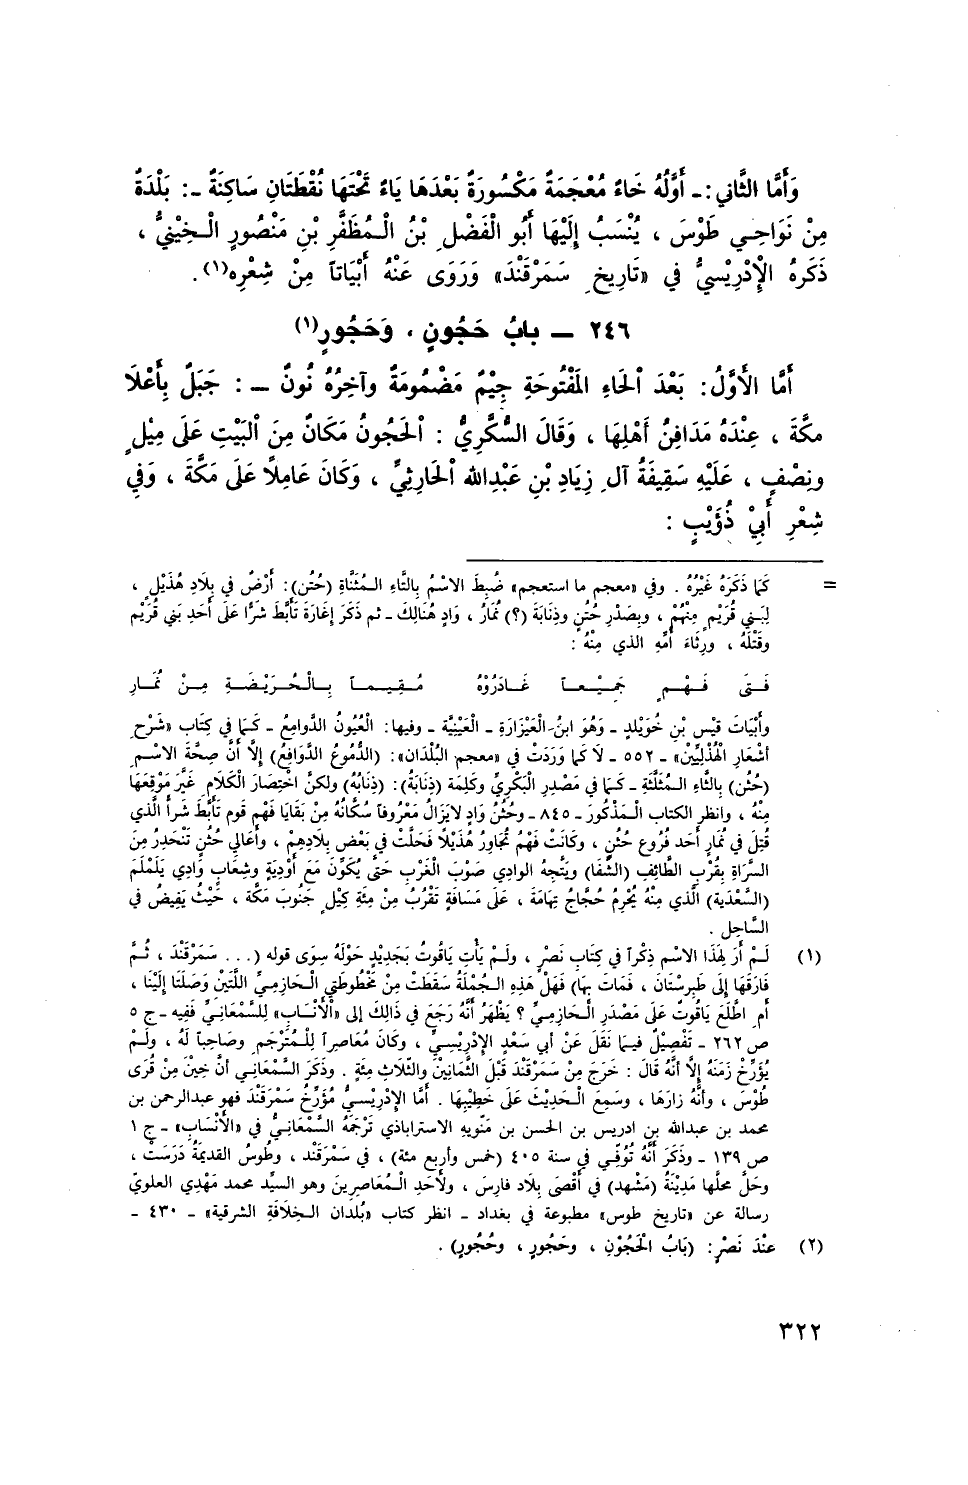 وَأَمَّا الثَّاني:ـ أَوَّلُهُ خَاءٌ مُعْجَمَةٌ مَكْسُورَةٌ بَعْدَهَا يَاءٌ تَحْتَهَا نُقْطَتَانِ سَاكِنَةٌ ـ: بَلْدَةٌ
مِنْ نَوَاحِي طَوْسَ ، يُنْسَبُ إِلَيْهَا أَبُو الْفَضْلِ بْنُ الْمُظَفَّرِ بْنِ مَنْصُورٍ الْخِيْنيُّ ،
ذَكَرَهُ الْإِدْرِيْسيُّ في «تَارِيخِ سَمَرْقَنْدَ» وَرَوَى عَنْهُ أَبْيَاتاً مِنْ شِعْرِه(١).
٢٤٦ ــ بابُ حَجُونٍ ، وَحَجُورٍ(١)
أَمَّا الأَوَّلُ: بَعْدَ اْلحَاءِ المَفْتُوحَةِ جِيْمٌ مَضْمُومَةٌ وآخِرُهُ نُونٌ ــ : جَبَلٌ بِأَعْلَا
مكَّةَ ، عِنْدَهُ مَدَافِنُ أَهْلِهَا ، وَقَالَ السُّكَّرِيُّ : اْلحَجُونُ مَكَانٌ مِنَ اْلبَيْتِ عَلَى مِيْلٍ
ونِصْفٍ ، عَلَيْهِ سَقِيفَةُ آلِ زِيَادِ بْنِ عَبْدِالله اْلحَارِثِيِّ ، وَكَانَ عَامِلاً عَلَى مَكَّةَ ، وَفي
شِعْرِ أَبيْ ذُؤَيْبٍ :
= كَمَا ذَكَرَهُ غَيْرُهُ . وفي «معجم ما استعجم» ضُبِطَ الاسْمُ بِالتَّاءِ المُثَنَّاةِ (حُتُن): أَرْضٌ في بِلَادِ هُذَيْلٍ ،
لِبَني قُرَيْمٍ مِنْهُمْ ، وبِصَدْرِ حُتُنٍ وذِنَابَةَ (؟) ثُمَارُ ، وَادٍ هُنَالِكَ ـ ثم ذَكَرَ إِغَارَةَ تَأَبَّطَ شَرًّا عَلَى أَحَدِ بَني قُرَيْم
وقَتْلَهُ ، ورِثَاءَ أُمِّهِ الذي مِنْهُ :
فَتَى فَهْمٍ جَمِيْعاً غَادَرُوْهُ مُقِيماً بِالْحُرَيْضَةِ مِنْ نُمَارِ
وأَبْيَاتَ قيْسِ بْنِ خُوَيْلِدٍ ـ وَهُوَ ابنُ الْعَيْزَارَةِ ـ الْعَيْنِيَّةِ ـ وفيها: الْعُيُونُ الدَّوامِعُ ـ كَمَا في كِتَابِ «شَرْحِ
أشْعَارِ الْهُذَلِيِّيْنَ» ـ ٥٥٢ ـ لَا كَمَا وَرَدَتْ في «معجم البُلْدَان»: (الدُّمُوعُ الدَّوَافِعُ) إِلَّا أَنَّ صِحَّةَ الاسْمِ
(حُثُن) بِالثَّاءِ المُثَلَّثَةِ ـ كَمَا في مَصْدَرِ الْبَكْرِيِّ وكَلِمَةِ (ذِنَابَةُ): (ذِنَابُهُ) ولكنَّ اخْتِصَارَ الْكَلَامِ غَيَّرَ مَوْقِعَهَا
مِنْهُ ، وانظر الكتاب الْمَذْكُورَ ـ ٨٤٥ ـ وحُثُنُ وَادٍ لايَزَالُ مَعْرُوفاً سُكَّانُهُ مِنْ بَقَايَا فَهْمٍ قوم تَأَبَّطَ شَرأَ الَّذي
قُتِلَ في نُمَارٍ أحد فُروعِ حُثُنٍ ، وكَانَتْ فَهْمٌ تُجَاوِرُ هُذَيْلًا فَحَلَّتْ في بَعْضِ بِلَادِهِمْ ، وأَعَالي حُثُنٍ تَنْحَدِرُ مِنَ
السَّرَاةِ بِقُرْبِ الطَّائِفِ (الشَّفَا) ويَتَّجِهُ الوادي صَوْبَ الْغَرْبِ حَتَّى يُكَوِّنَ مَعَ أَوْدِيَةٍ وشِعَابٍ وَادِي يَلَمْلَمَ
(السَّعْدَية) الَّذي مِنْهُ يُحْرِمُ حُجَّاجُ تِهَامَةَ ، عَلَى مَسَافَةٍ تَقْرُبُ مِنْ مِئَةِ كِيْلٍ جَنُوبَ مَكَّةَ ، حَيْثُ يَفِيضُ في
السَّاحِلِ .
(١) لَمْ أَرَ لِهَذَا الاسْم ذِكْراً في كِتَابِ نَصْرٍ ، ولَمْ يَأْتِ يَاقُوتُ بَجَدِيْدٍ حَوْلَهُ سِوَى قوله (... سَمَرْقَنْدَ ، ثُمَّ
فَارَقَهَا إِلى طَبرِسْتَانَ ، فَمَات بِهَا) فَهَلْ هَذِهِ الْجُمْلَةُ سَقَطَتْ مِنْ مَخْطُوطَتِي الْحَازِميِّ اللَّتَيْنِ وَصَلَتَا إِلَيْنَا ،
أم اطَّلَعَ يَاقُوتُ عَلَى مَصْدَرِ الْحَازِميِّ ؟ يَظْهَرُ أَنَّهُ رَجَعَ في ذَالِكَ إلى «الْأَنْسَابِ» لِلسَّمْعَانيِّ فَفِيه ـ ج ٥
ص ٢٦٢ ـ تَفْصِيْلٌ فيما نَقَلَ عَنْ أبي سَعْدٍ الإِدْرِيْسيِّ ، وكَانَ مُعَاصِراً لِلْمُتَرْجَمِ وصَاحِباً لَهُ ، ولَمْ
يُؤَرِّخْ زَمَنَهُ إِلَّا أَنَّهُ قَالَ : خَرَجَ مِنْ سَمَرْقَنْدَ قَبْلَ الثَّمَانِيْنَ والثَّلَاثِ مِئَةٍ . وذَكَرَ السَّمْعَانِي أنَّ خِيْنَ مِنْ قُرَى
طُوْسَ ، وأَنَّهُ زَارَهَا ، وسَمِعَ الْحَدِيْثَ عَلَى خَطِيْبِهَا . أَمَّا الإِدْرِيْسيُّ مُؤَرِّخُ سَمَرْقَنْدَ فهو عبدالرحمن بن
محمد بن عبدالله بن ادريس بن الحسن بن مَتّويهِ الاستراباذي تَرْجَمَهُ السَّمْعَانيُّ في «الأَنْسَابِ» ـ ج ١
ص ١٣٩ ـ وذَكَرَ أَنَّهُ تُوُفِّي في سنة ٤٠٥ (خمس وأربع مئة) ، في سَمَرْقَند ، وطُوسُ القديمةُ دَرَسَتْ ،
وحَلَّ محلَّها مَدِيْنَةُ (مَشهد) في أَقْصَى بِلَاد فارِسَ ، ولأَحَدِ الْمُعَاصِرِينَ وهو السيِّد محمد مَهْدِي العلويّ
رسالة عن «تاريخ طوس» مطبوعة في بغداد ـ انظر كتاب «بُلدان الْخِلَافَةِ الشرقية» ـ ٤٣٠ ـ
(٢) عنْدَ نَصْرٍ: (بَابُ الحَجُوْنِ ، وحَجُورٍ ، وحُجُورٍ) .
٣٢٢